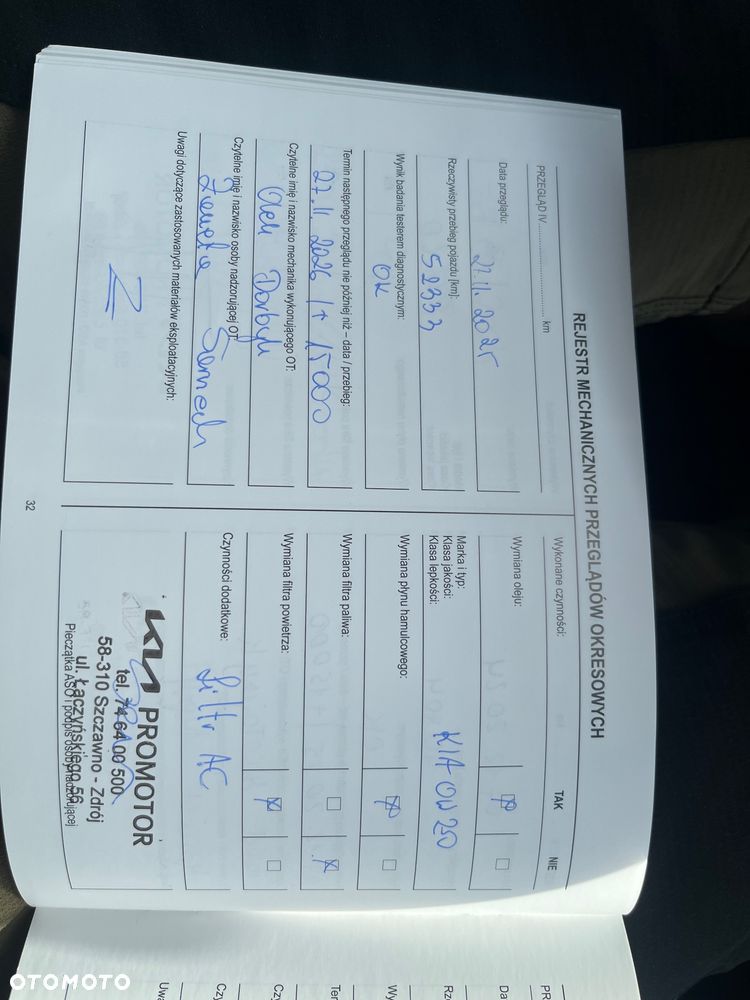 REJESTR MECHANICZNYCH PRZEGLĄDÓW OKRESOWYCH
PRZEGLĄD IV ........................ km
Data przeglądu:
27.11.2025
Rzeczywisty przebieg pojazdu [km]:
52333
Wynik badania testerem diagnostycznym:
OK
Termin następnego przeglądu nie później niż – data / przebieg:
27.11.2026 / + 15000
Czytelne imię i nazwisko mechanika wykonującego OT:
Czytelne imię i nazwisko osoby nadzorującej OT:
Uwagi dotyczące zastosowanych materiałów eksploatacyjnych:
Z
Wykonane czynności: TAK NIE
Wymiana oleju:
Marka i typ:
Klasa jakości:
Klasa lepkości:
KIA 0W20
Wymiana płynu hamulcowego:
Wymiana filtra paliwa:
Wymiana filtra powietrza:
Czynności dodatkowe:
filtr AC
KIA PROMOTOR
tel. 74 64 00 500
58-310 Szczawno - Zdrój
ul. Łączyńskiego 56
Pieczątka ASO i podpis osoby nadzorującej
32
PR
Da
Rz
Wy
Ter
Cz
Cz
Uwa
OTOMOTO